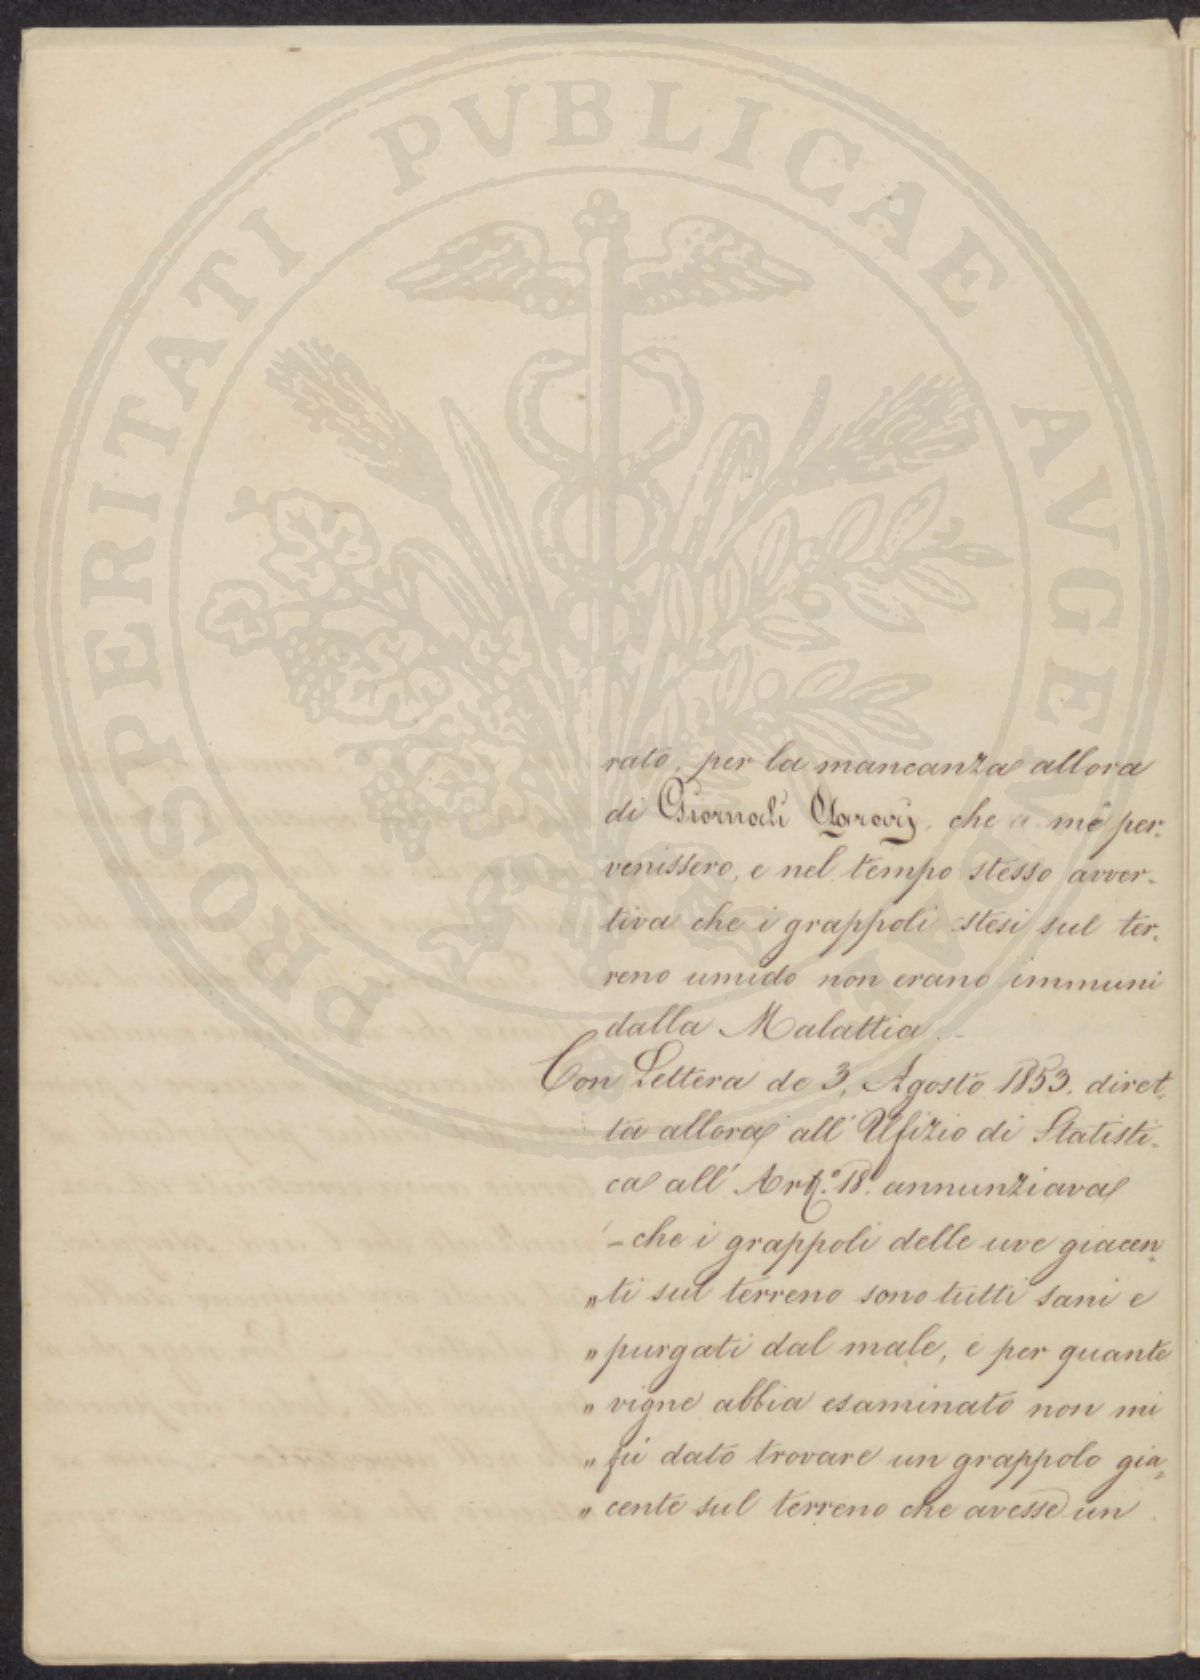 PROSPERITATI PVBLICAE AVGENDAE
rato, per la mancanza allora
di Giornali Agrarij, che a me per-
venissero, e nel tempo stesso avver-
tiva che i grappoli stesi sul ter-
reno umido non erano immuni
dalla Malattia.-
Con Lettera de 3, Agosto 1853. diret-
ta allora all' Ufizio di Statisti-
ca all' Art.° 18° annunziava
- che i grappoli delle uve giacen-
" ti sul terreno sono tutti sani e
" purgati dal male, e per quante
" vigne abbia esaminato non mi
" fù dato trovare un grappolo gia-
" cente sul terreno che avesse un